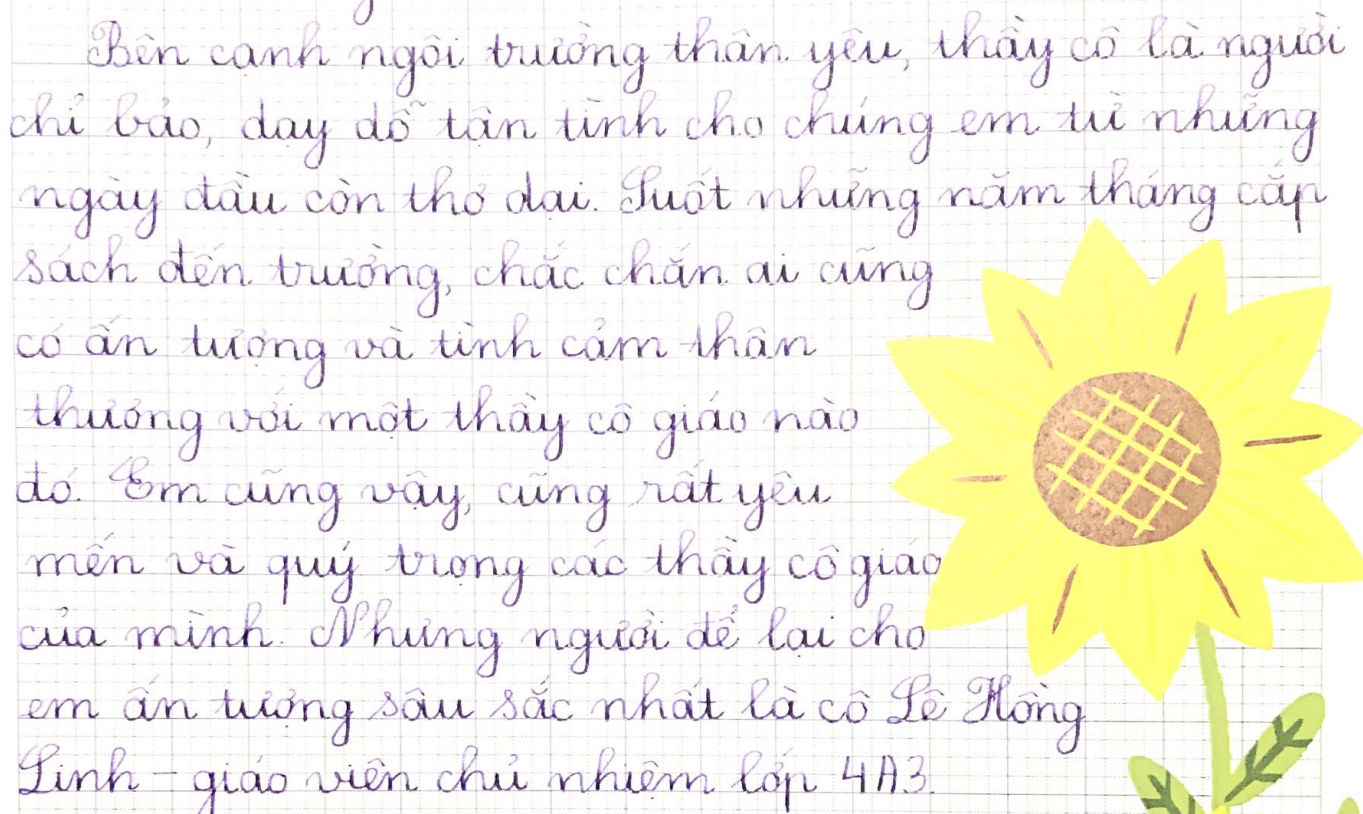 Bên cạnh ngôi trường thân yêu, thầy cô là người
chỉ bảo, dạy dỗ tận tình cho chúng em từ những
ngày đầu còn thơ dại. Suốt những năm tháng cắp
sách đến trường, chắc chắn ai cũng
có ấn tượng và tình cảm thân
thương với một thầy cô giáo nào
đó. Em cũng vậy, cũng rất yêu
mến và quý trọng các thầy cô giáo
của mình. Nhưng người để lại cho
em ấn tượng sâu sắc nhất là cô Lê Hồng
Linh - giáo viên chủ nhiệm lớp 4A3.